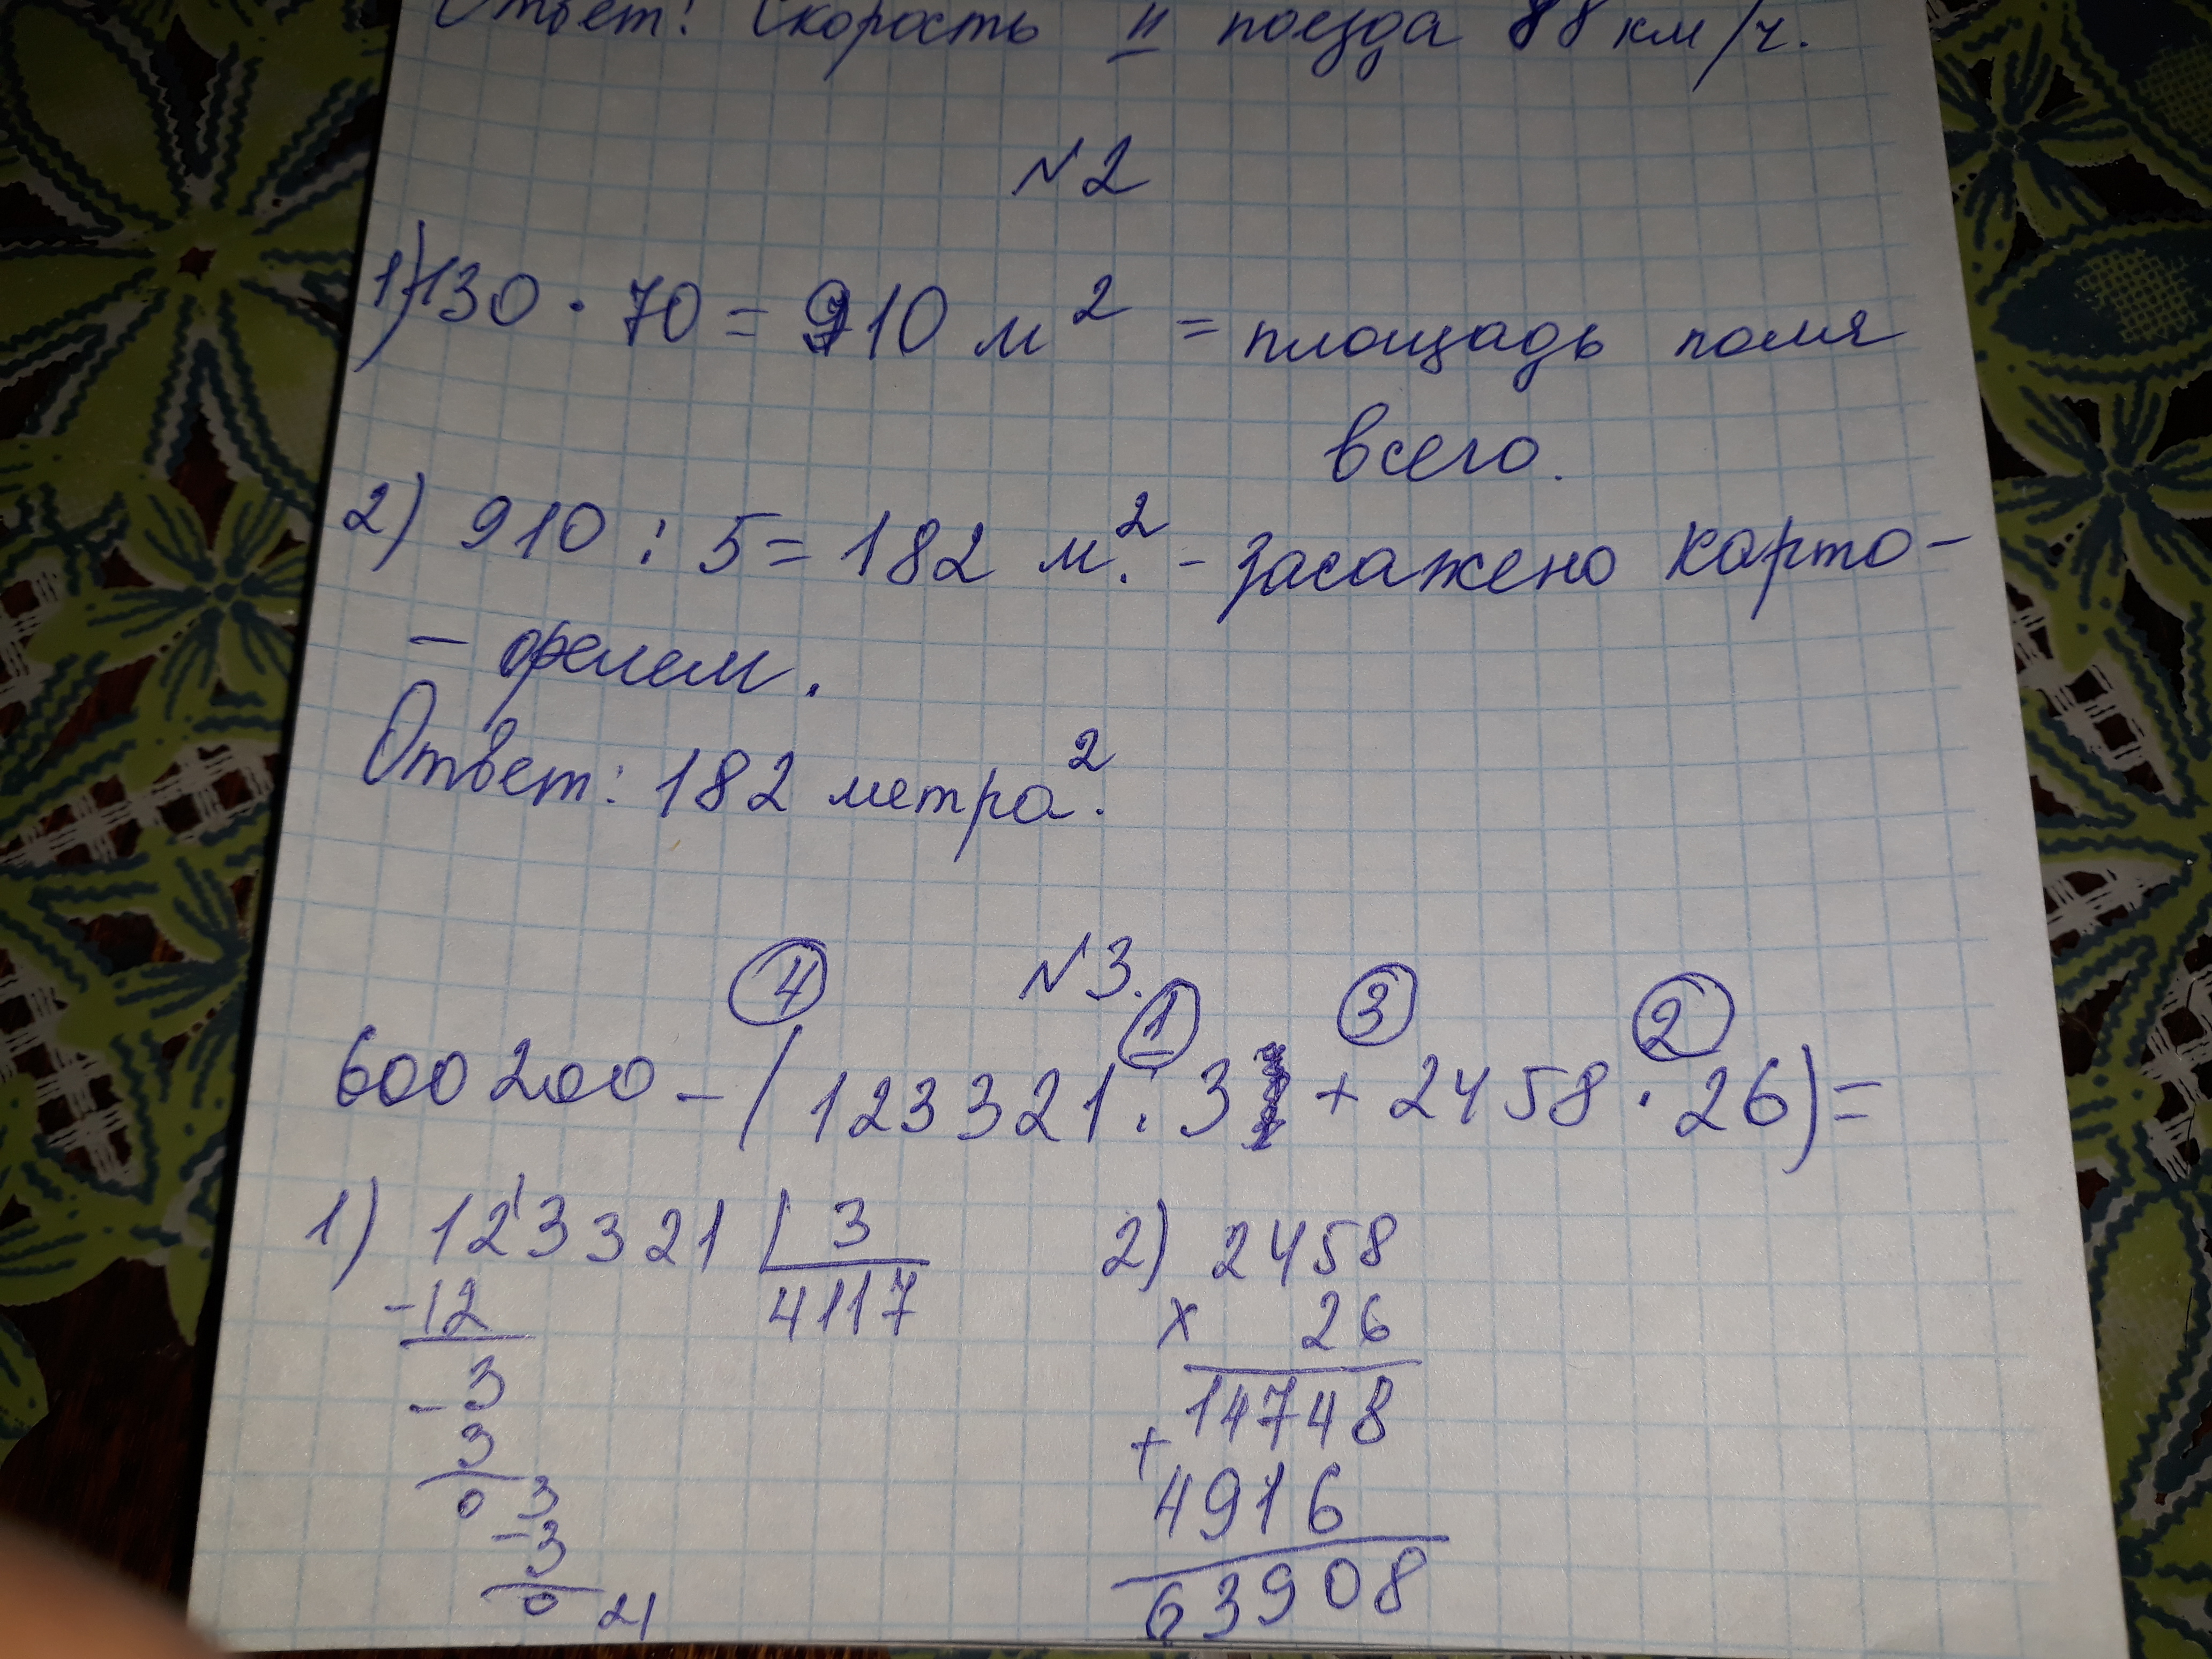 Ответ: Скорость II поезда 88 км/ч.
№2
1) 130 · 70 = 910 м² = площадь поля
всего.
2) 910 : 5 = 182 м.² - засажено карто-
- фелем.
Ответ: 182 метра².
№3.
4 1 3 2
600 200 - (123 321 : 3 + 2458 · 26) =
1) 123321 | 3
-12
4117
-3
3
0 3
-3
0 21
2) 2458
x 26
14748
+
4916
63908